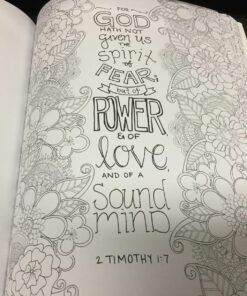 FOR
GOD
HATH NOT
given us
THE
spirit
OF
FEAR;
but of
POWER
& OF
love,
AND OF A
Sound
MIND
2 TIMOTHY 1:7